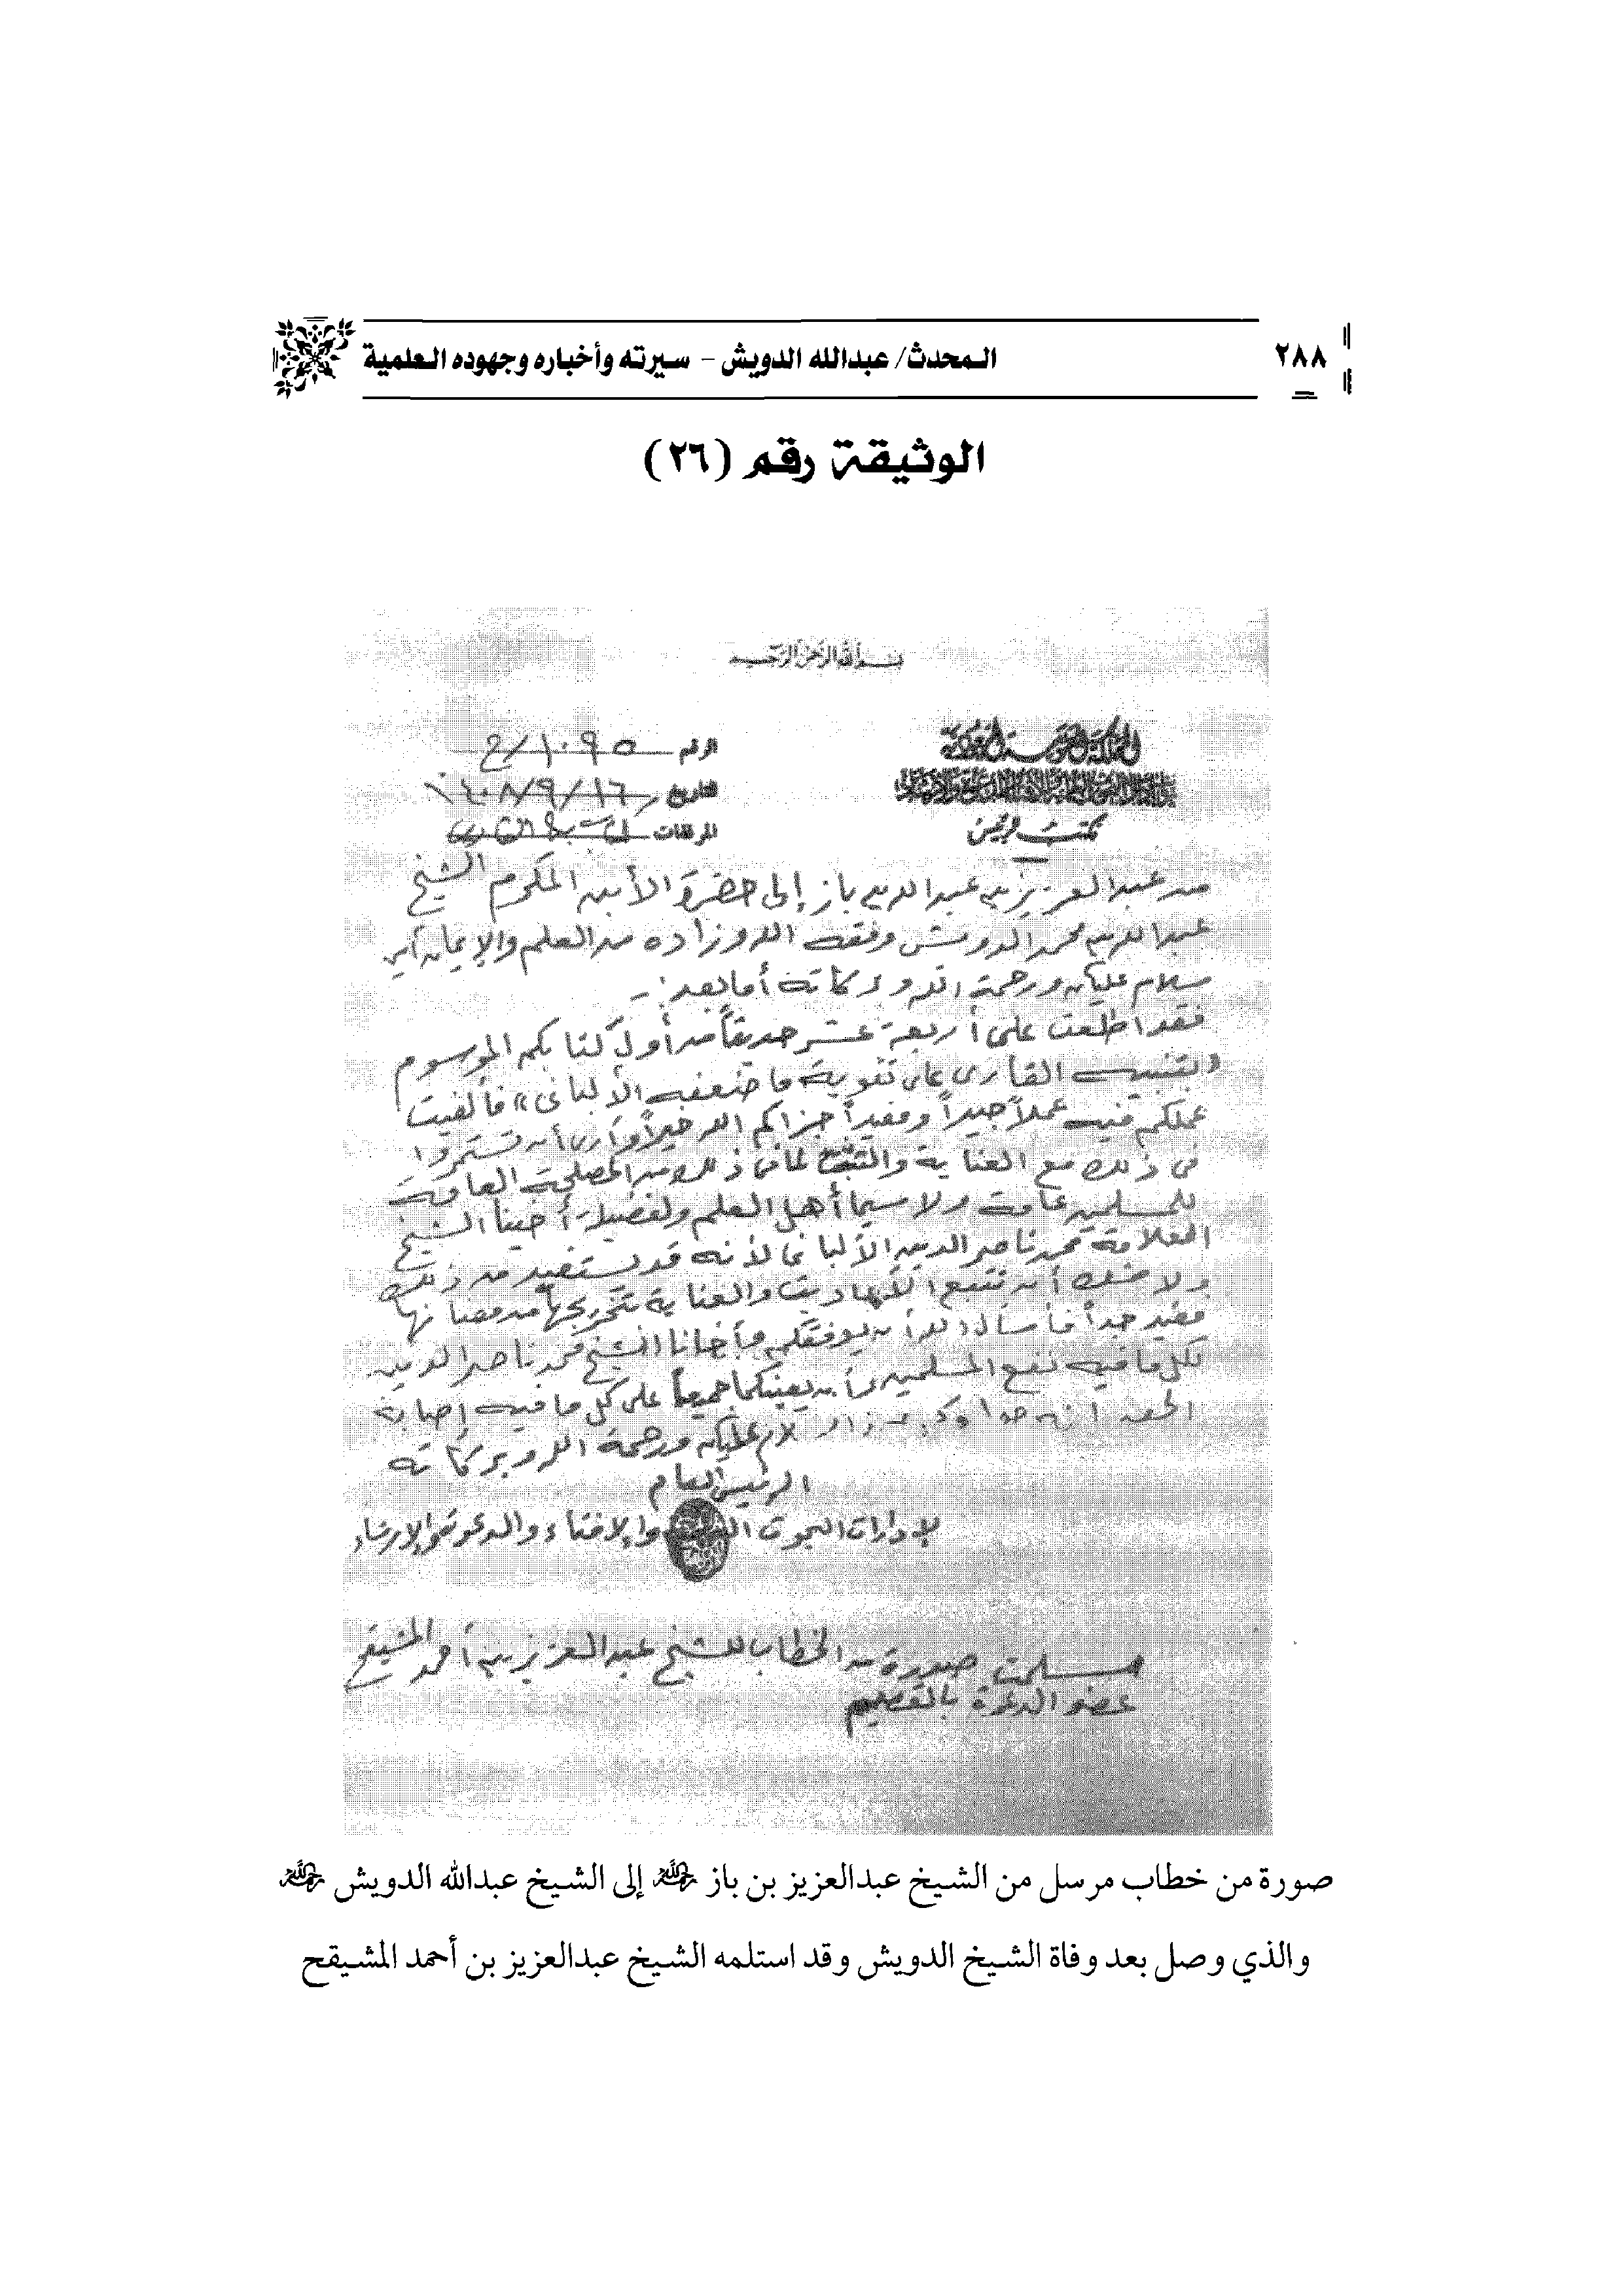 ٢٨٨
المحدث/ عبدالله الدويش - سيرته وأخباره وجهوده العلمية
الوثيقة رقم (٢٦)
بسم الله الرحمن الرحيم
المملكة العربية السعودية
مكتب الرئيس
الرقم ١٠٩٥/خ
التاريخ ١٤٠٨/٩/١٦
المرفقات
من عبدالعزيز بن عبدالله بن باز إلى حضرة الابن المكرم الشيخ
عبدالله بن محمد الدويش وفقه الله وزاده من العلم والإيمان آمين
سلام عليكم ورحمة الله وبركاته أما بعد:-
فقد اطلعت على أربعة عشر حديثاً من أول كتابكم الموسوم
«تنبيه القارئ على تقوية ما ضعفه الألباني» فألفيت
عملكم فيه عملاً جيداً ومفيداً جزاكم الله خيراً وأرى أن تستمروا
في ذلك مع العناية والتتبع لما في ذلك من المصلحة العامة
للمسلمين عامة ولا سيما أهل العلم ولفضيلة أخينا الشيخ
العلامة محمد ناصر الدين الألباني لأنه قد يستفيد من ذلك
ولا شك أن تتبع الأحاديث والعناية بتخريجها من مصانها
مفيد جداً فأسأل الله أن يوفقكم وأخانا الشيخ محمد ناصر الدين
لكل ما فيه نفع المسلمين وأن يعينكما جميعاً على كل ما فيه إصابة
الحق إنه جواد كريم والسلام عليكم ورحمة الله وبركاته
الرئيس العام
لإدارات البحوث العلمية والإفتاء والدعوة والإرشاد
سلمت صورة من الخطاب للشيخ عبدالعزيز بن أحمد المشيقح
عضو الدعوة بالقصيم
صورة من خطاب مرسل من الشيخ عبدالعزيز بن باز رحمه الله إلى الشيخ عبدالله الدويش رحمه الله
والذي وصل بعد وفاة الشيخ الدويش وقد استلمه الشيخ عبدالعزيز بن أحمد المشيقح